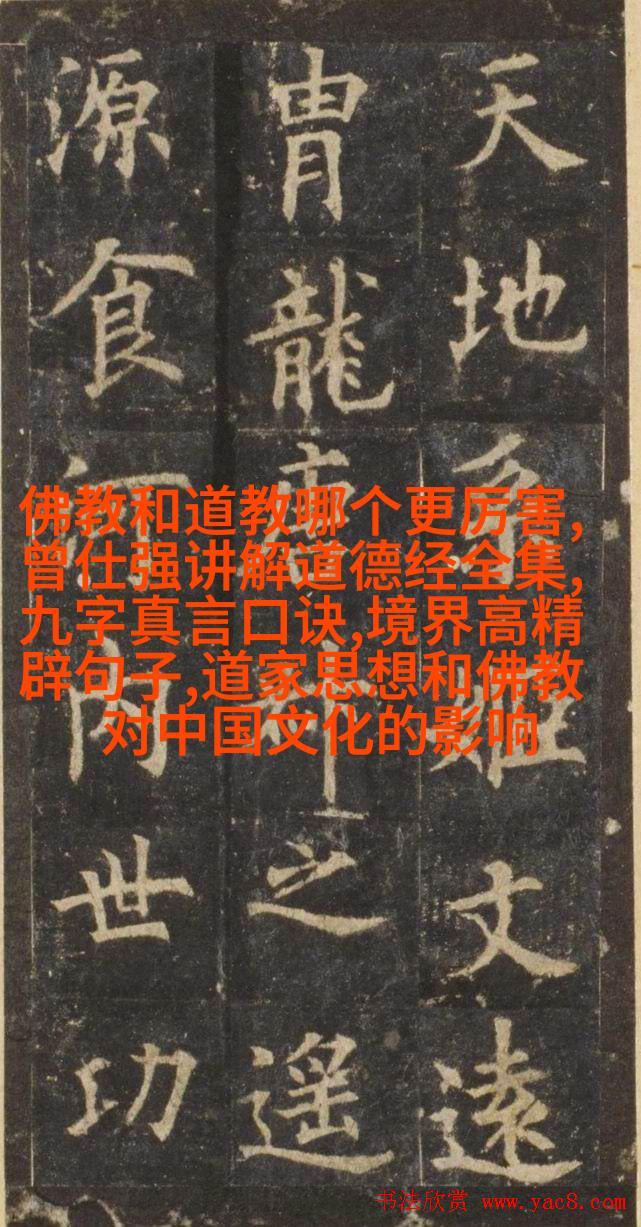 天地姬文遠
胄龍之遥
源食河内世功
佛教和道教哪个更厉害,
曾仕强讲解道德经全集,
九字真言口诀,境界高精
辟句子,道家思想和佛教
对中国文化的影响
书法欣赏 www.yac8.com